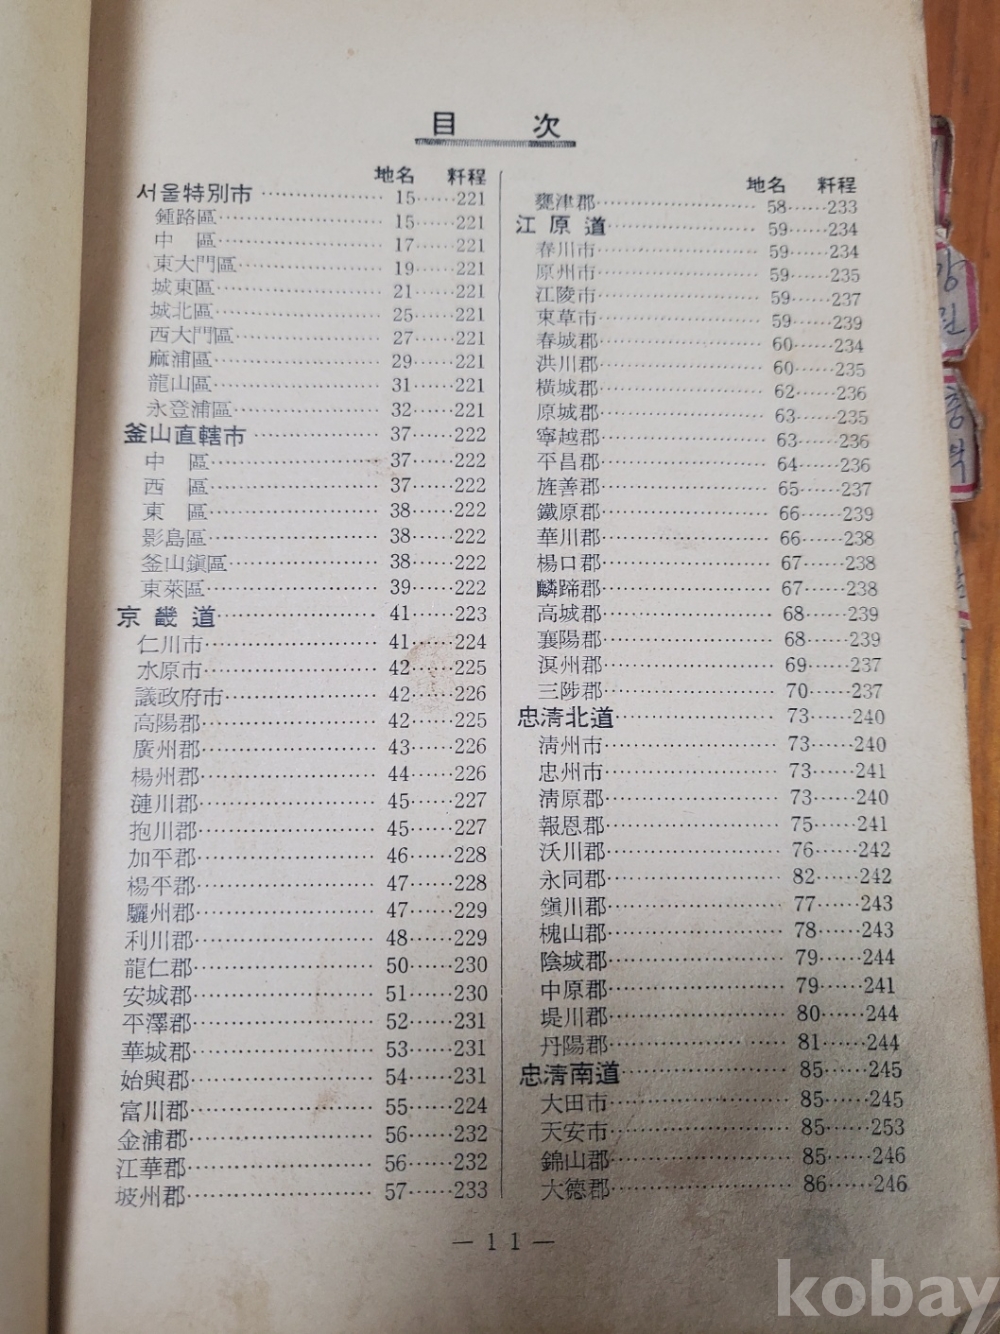 目 次
地名 粁程
서울特別市 15 221
鍾路區 15 221
中 區 17 221
東大門區 19 221
城東區 21 221
城北區 25 221
西大門區 27 221
麻浦區 29 221
龍山區 31 221
永登浦區 32 221
釜山直轄市 37 222
中 區 37 222
西 區 37 222
東 區 38 222
影島區 38 222
釜山鎭區 38 222
東萊區 39 222
京畿道 41 223
仁川市 41 224
水原市 42 225
議政府市 42 226
高陽郡 42 225
廣州郡 43 226
楊州郡 44 226
漣川郡 45 227
抱川郡 45 227
加平郡 46 228
楊平郡 47 228
驪州郡 47 229
利川郡 48 229
龍仁郡 50 230
安城郡 51 230
平澤郡 52 231
華城郡 53 231
始興郡 54 231
富川郡 55 224
金浦郡 56 232
江華郡 56 232
坡州郡 57 233
地名 粁程
甕津郡 58 233
江原道 59 234
春川市 59 234
原州市 59 235
江陵市 59 237
束草市 59 239
春城郡 60 234
洪川郡 60 235
橫城郡 62 236
原城郡 63 235
寧越郡 63 236
平昌郡 64 236
旌善郡 65 237
鐵原郡 66 239
華川郡 66 238
楊口郡 67 238
麟蹄郡 67 238
高城郡 68 239
襄陽郡 68 239
溟州郡 69 237
三陟郡 70 237
忠淸北道 73 240
淸州市 73 240
忠州市 73 241
淸原郡 73 240
報恩郡 75 241
沃川郡 76 242
永同郡 82 242
鎭川郡 77 243
槐山郡 78 243
陰城郡 79 244
中原郡 79 241
堤川郡 80 244
丹陽郡 81 244
忠淸南道 85 245
大田市 85 245
天安市 85 253
錦山郡 85 246
大德郡 86 246
— 11 —
강
원
충
북
kobay